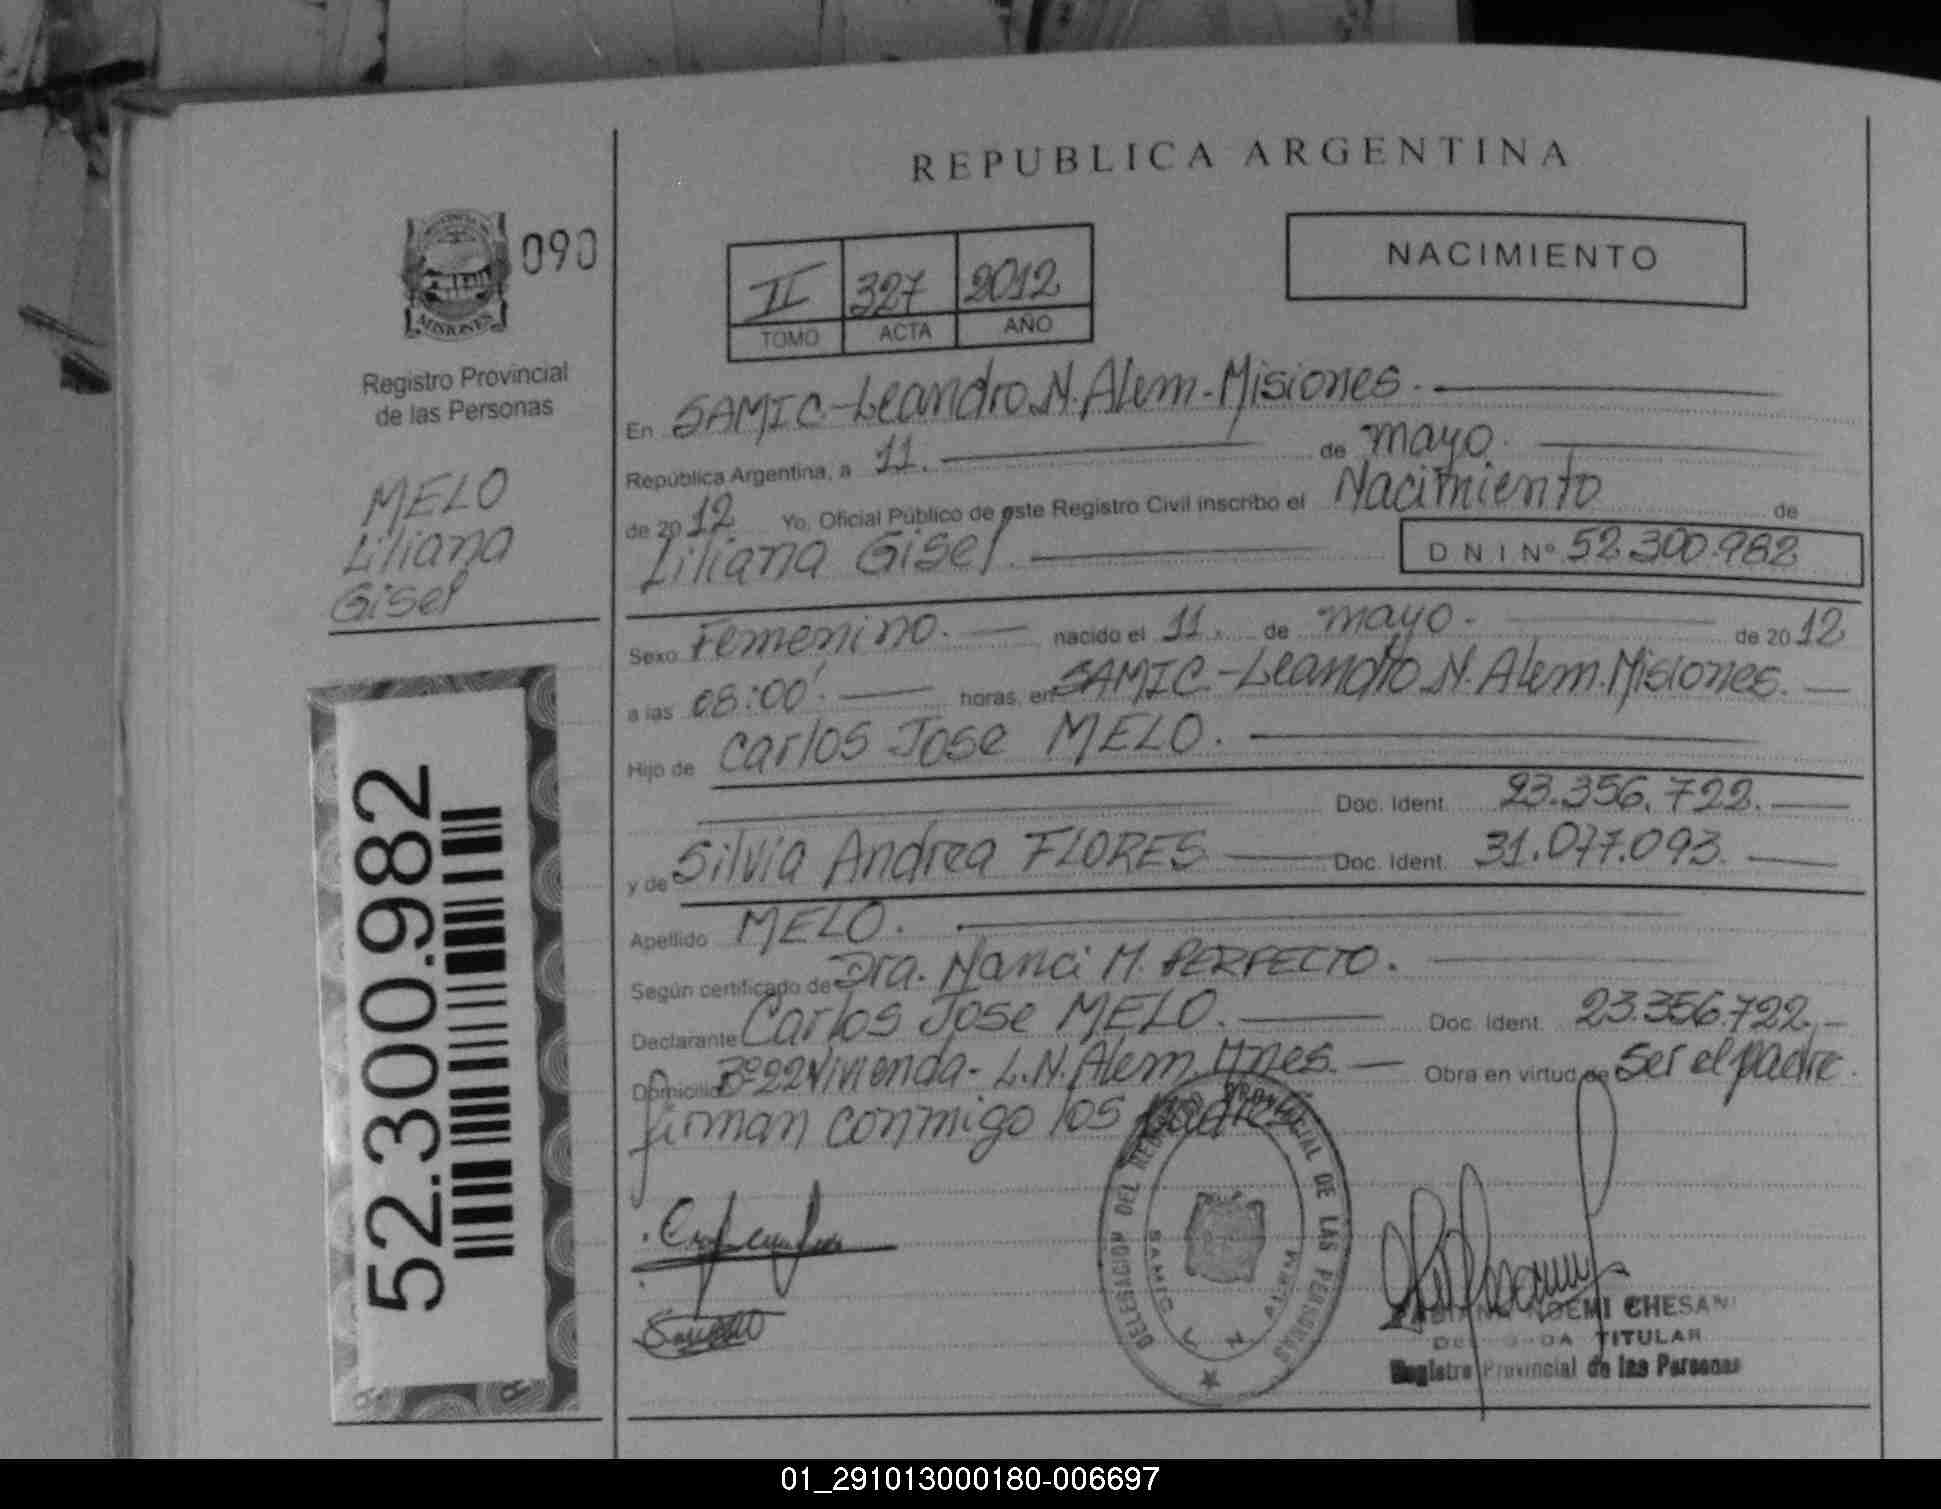 REPUBLICA ARGENTINA
090
NACIMIENTO
II 327 2012
TOMO ACTA AÑO
MISIONES
Registro Provincial
de las Personas
MELO
Liliana
Gisel
En SAMIC-Leandro.N.Alem-Misiones.
República Argentina, a 11. de mayo.
de 2012 Yo, Oficial Público de este Registro Civil inscribo el Nacimiento de
Liliana Gisel. DNI Nº 52.300.982
Sexo Femenino. nacido el 11. de mayo. de 2012
a las 08:00'. horas, en SAMIC-Leandro.N.Alem.Misiones.
Hijo de Carlos Jose MELO.
Doc. Ident. 23.356.722.
y de Silvia Andrea FLORES Doc. Ident. 31.077.093.
Apellido MELO.
Según certificado de Dra. Nanci M. PERFECTO.
Declarante Carlos Jose MELO. Doc. Ident. 23.356.722.
Domicilio Bº22Vivienda- L.N.Alem. Mnes. Obra en virtud de ser el padre.
firman conmigo los padres
52.300.982
DELEGACION DEL REGISTRO PROVINCIAL DE LAS PERSONAS
SAMIC L N ALEM
NOEMI CHESANI
TITULAR
Registro Provincial de las Personas
01_291013000180-006697